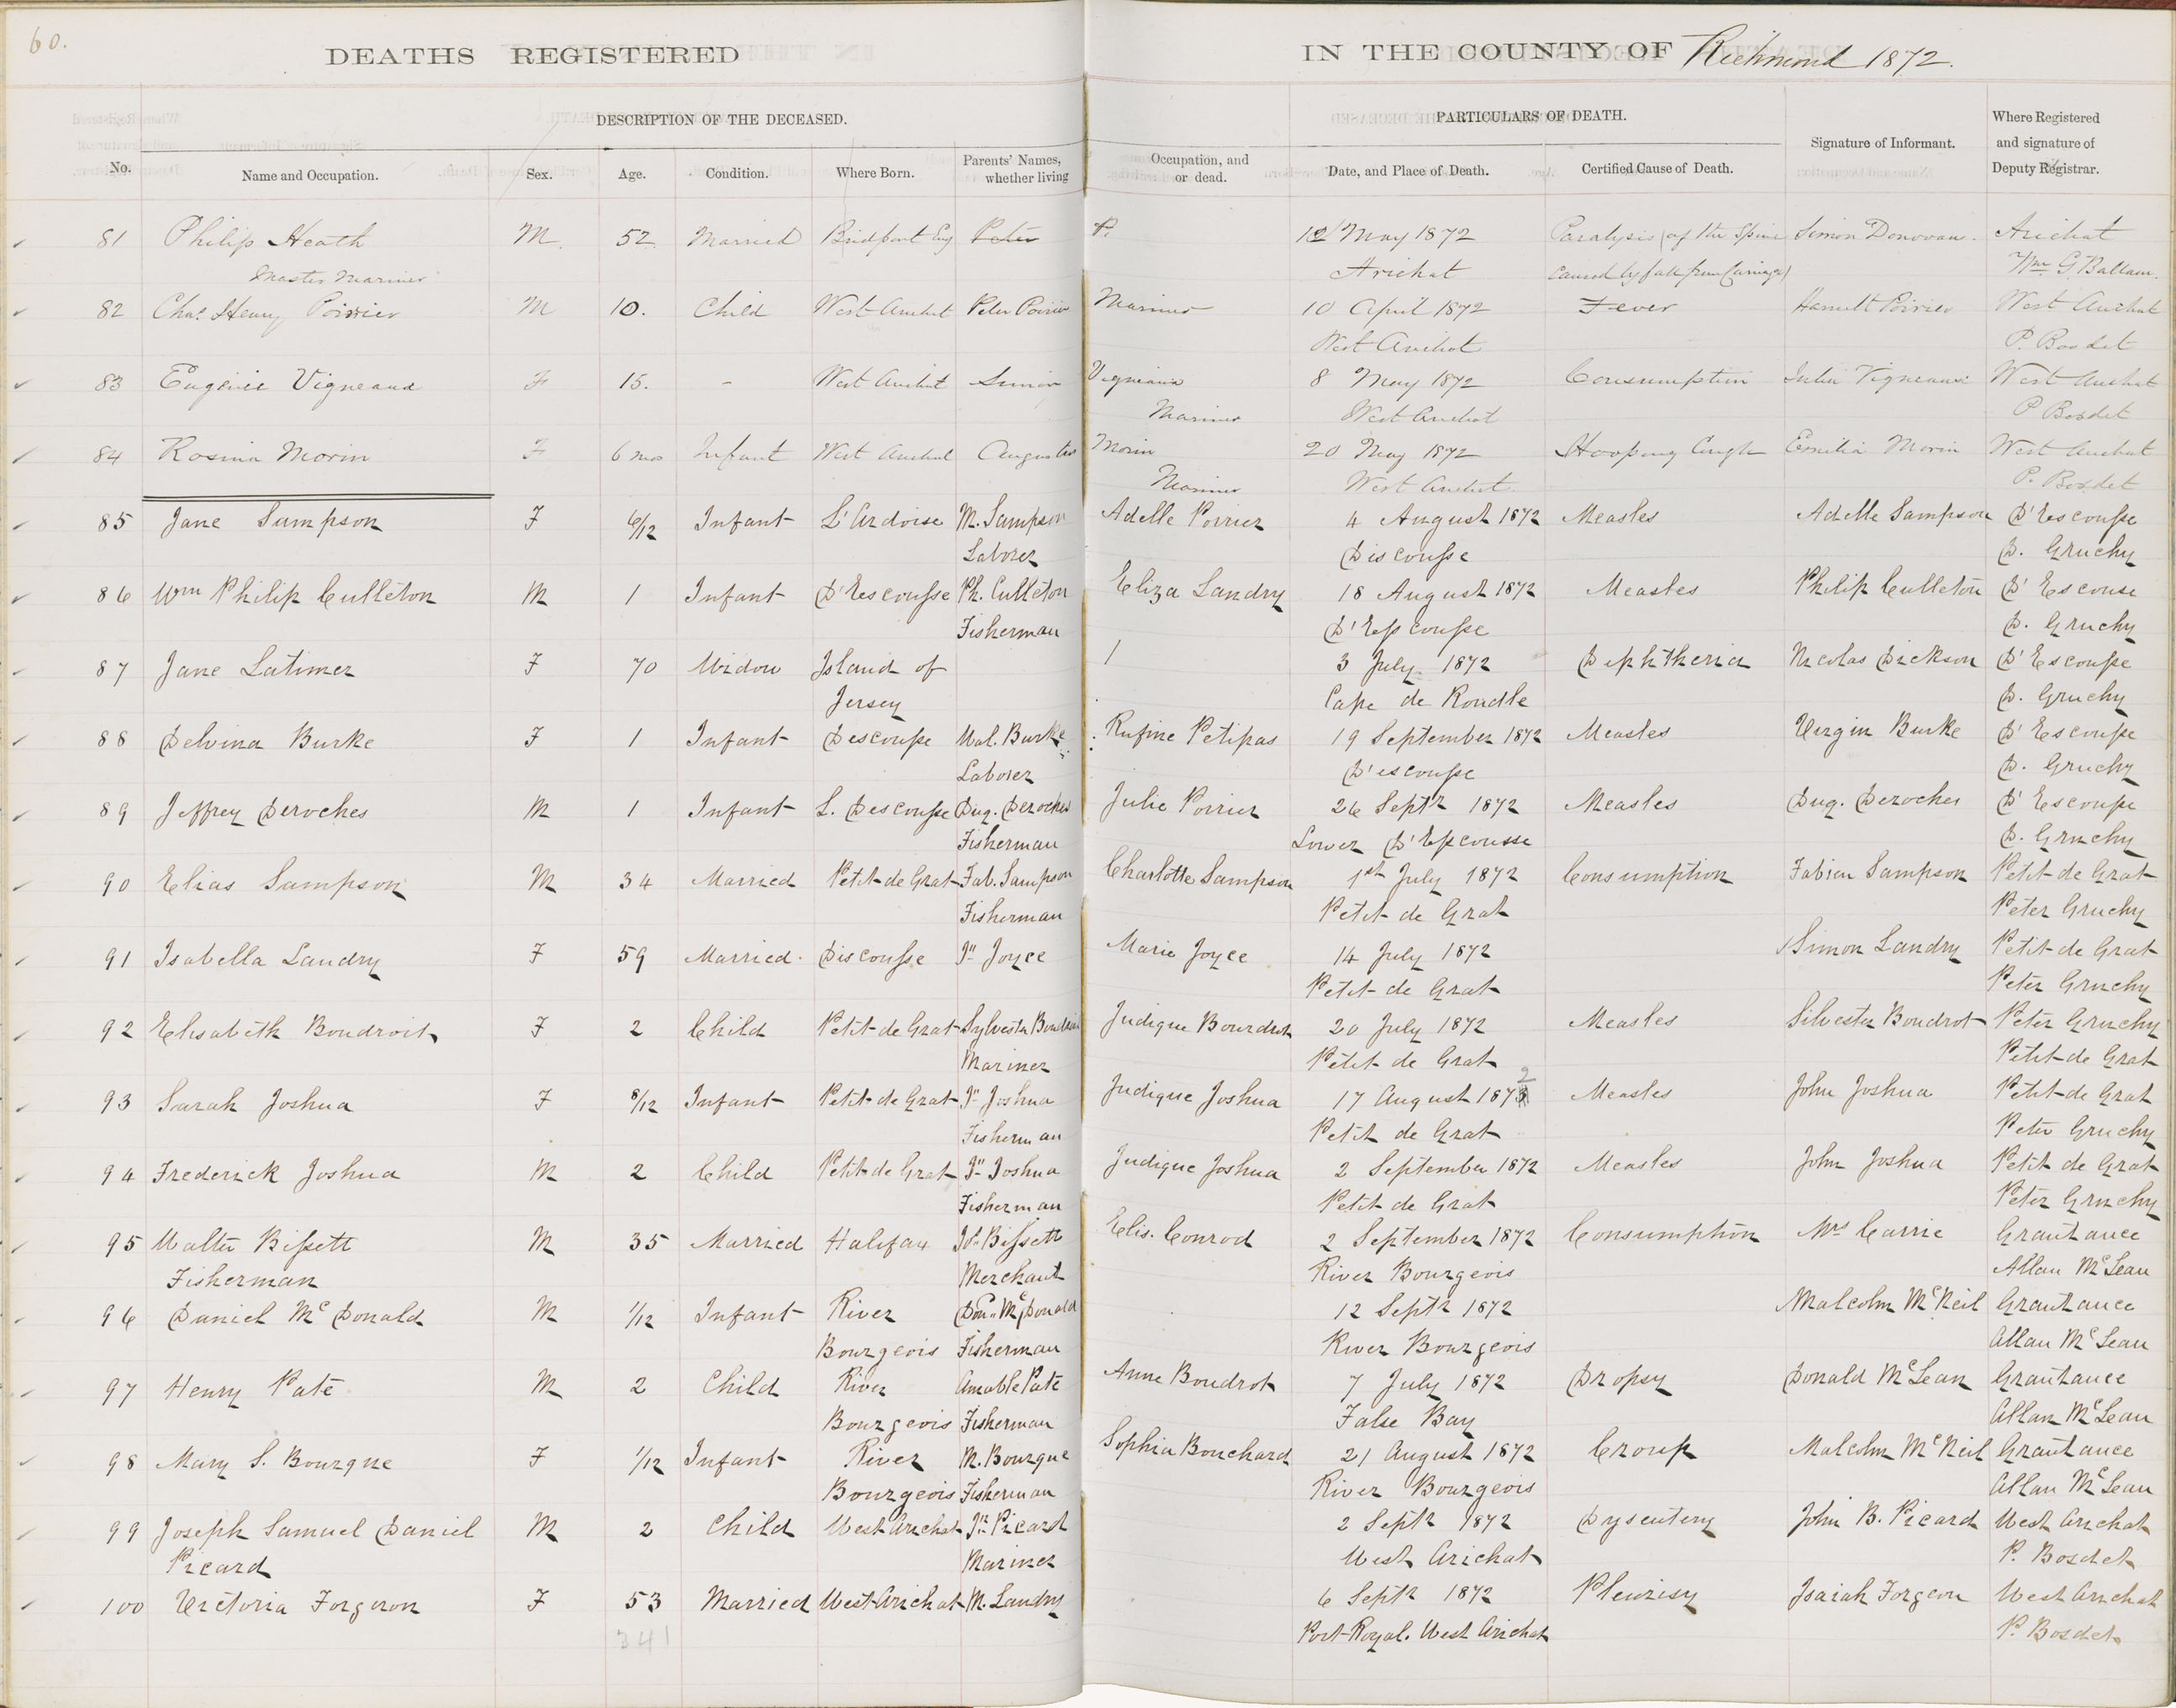 60.
DEATHS REGISTERED IN THE COUNTY OF Richmond 1872.
DESCRIPTION OF THE DECEASED. PARTICULARS OF DEATH.
No. Name and Occupation. Sex. Age. Condition. Where Born. Parents' Names, whether living Occupation, and or dead. Date, and Place of Death. Certified Cause of Death. Signature of Informant. Where Registered and signature of Deputy Registrar.
81 Philip Heath M. 52 Married Bridport Eng Peter P. 12 May 1872 Paralysis (of the Spine Simon Donovan. Arichat
Master Mariner Arichat caused by fall from Carriage) Wm G. Ballam.
82 Chas. Henry Poirier M 10. Child West Arichat Peter Poirier Mariner 10 April 1872 Fever Poirier West Arichat
West Arichat P. Bosdet
83 Eugénie Vigneaux F 15. - West Arichat Simon Vigneaux 8 May 1872 Consumption Julia Vigneaux West Arichat
Mariner West Arichat P Bosdet
84 Rosina Morin F 6 mos Infant West Arichat Augustus Morin 20 May 1872 Hooping Cough Emilia Morin West Arichat
Mariner West Arichat. P. Bosdet
85 Jane Sampson F 6/12 Infant L'Ardoise M. Sampson Adelle Poirier 4 August 1872 Measles Adelle Sampson D'Escousse
Laborer Discousse D. Gruchy
86 Wm Philip Culleton M 1 Infant D'Escousse Ph. Culleton Eliza Landry 18 August 1872 Measles Philip Culleton D'Escouse
Fisherman D'Escousse D. Gruchy
87 Jane Latimer F 70 Widow Island of / 3 July 1872 Diphtheria Nicolas Dickson D'Escousse
Jersey Cape de Rondle D. Gruchy
88 Delvina Burke F 1 Infant Descousse Wal. Burke Rufine Petipas 19 September 1872 Measles Virgin Burke D'Escousse
Laborer D'escousse D. Gruchy
89 Jeffrey Deroches M 1 Infant L. Descousse Dug. Deroches Julie Poirier 26 Septr 1872 Measles Dug. Deroches D'Escousse
Fisherman Lower D'Escousse D. Gruchy
90 Elias Sampson M 34 Married Petit de Grat Fab. Sampson Charlotte Sampson 1st July 1872 Consumption Fabien Sampson Petit de Grat
Fisherman Petit de Grat Peter Gruchy
91 Isabella Landry F 59 Married. Discousse Jn Joyce Marie Joyce 14 July 1872 Simon Landry Petit de Grat
Petit de Grat Peter Gruchy
92 Elisabeth Boudroit F 2 Child Petit de Grat Sylvester Boudroit Judique Bourdrot 20 July 1872 Measles Silvester Boudrot Peter Gruchy
Mariner Petit de Grat Petit de Grat
93 Sarah Joshua F 8/12 Infant Petit de Grat Jn Joshua Judique Joshua 17 August 1872 Measles John Joshua Petit de Grat
Fisherman Petit de Grat Peter Gruchy
94 Frederick Joshua M 2 Child Petit de Grat Jn Joshua Judique Joshua 2 September 1872 Measles John Joshua Petit de Grat
Fisherman Petit de Grat Peter Gruchy
95 Walter Bissett M 35 Married Halifax Js. Bissett Elis. Conrod 2 September 1872 Consumption Mrs Carrie Grantance
Fisherman Merchant River Bourgeois Allan McLean
96 Daniel McDonald M 1/12 Infant River Don. McDonald 12 Septr 1872 Malcolm McNeil Grantance
Bourgeois Fisherman River Bourgeois Allan McLean
97 Henry Pate M 2 Child River Amable Pate Anne Boudrot 7 July 1872 Dropsy Donald McLean Grantance
Bourgeois Fisherman False Bay Allan McLean
98 Mary S. Bourque F 1/12 Infant River M. Bourque Sophia Bouchard 21 August 1872 Croup Malcolm McNeil Grantance
Bourgeois Fisherman River Bourgeois Allan McLean
99 Joseph Samuel Daniel M 2 Child West Arichat Jn Picard 2 Septr 1872 Dysentery John B. Picard West Arichat
Picard Mariner West Arichat P. Bosdet
100 Victoria Forgeron F 53 Married West Arichat M. Landry 6 Septr 1872 Pleurisy Isaiah Forgeon West Arichat
341 Port Royal. West Arichat P. Bosdet